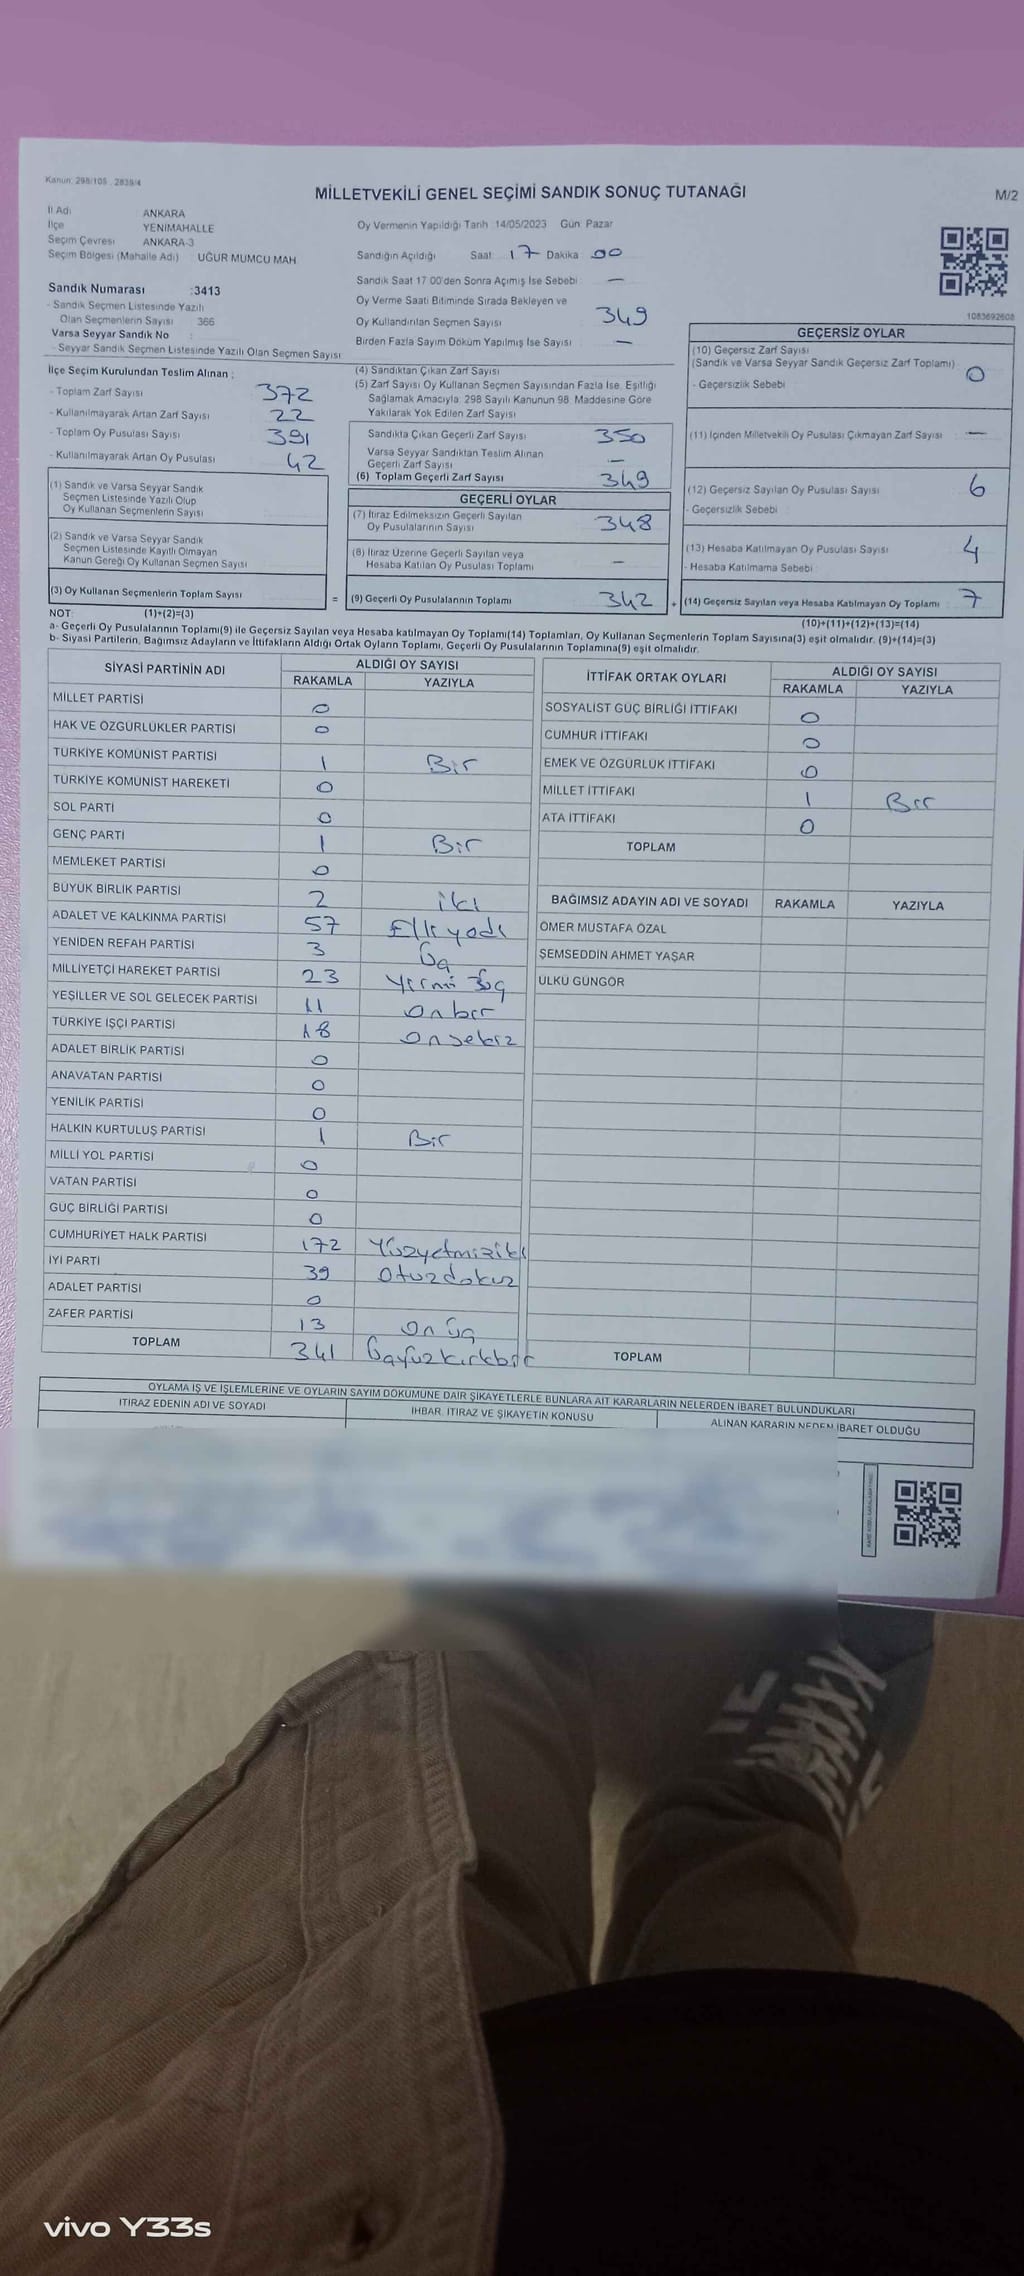 Kanun: 298/105 , 2839/4
MİLLETVEKİLİ GENEL SEÇİMİ SANDIK SONUÇ TUTANAĞI
M/2
İl Adı ANKARA
İlçe YENİMAHALLE
Seçim Çevresi ANKARA-3
Seçim Bölgesi (Mahalle Adı) UĞUR MUMCU MAH
Sandık Numarası :3413
- Sandık Seçmen Listesinde Yazılı
Olan Seçmenlerin Sayısı 366
Varsa Seyyar Sandık No :
- Seyyar Sandık Seçmen Listesinde Yazılı Olan Seçmen Sayısı
Oy Vermenin Yapıldığı Tarih 14/05/2023 Gün: Pazar
Sandığın Açıldığı Saat: 17 Dakika 00
Sandık Saat 17:00'den Sonra Açımış İse Sebebi: —
Oy Verme Saati Bitiminde Sırada Bekleyen ve
Oy Kullandırılan Seçmen Sayısı 349
Birden Fazla Sayım Döküm Yapılmış İse Sayısı —
1083692608
İlçe Seçim Kurulundan Teslim Alınan ;
- Toplam Zarf Sayısı 372
- Kullanılmayarak Artan Zarf Sayısı 22
- Toplam Oy Pusulası Sayısı 391
- Kullanılmayarak Artan Oy Pusulası 42
(1) Sandık ve Varsa Seyyar Sandık
Seçmen Listesinde Yazılı Olup
Oy Kullanan Seçmenlerin Sayısı
(2) Sandık ve Varsa Seyyar Sandık
Seçmen Listesinde Kayıtlı Olmayan
Kanun Gereği Oy Kullanan Seçmen Sayısı
(3) Oy Kullanan Seçmenlerin Toplam Sayısı
(1)+(2)=(3)
=
(4) Sandıktan Çıkan Zarf Sayısı
(5) Zarf Sayısı Oy Kullanan Seçmen Sayısından Fazla İse, Eşitliği
Sağlamak Amacıyla, 298 Sayılı Kanunun 98. Maddesine Göre
Yakılarak Yok Edilen Zarf Sayısı
Sandıkta Çıkan Geçerli Zarf Sayısı 350
Varsa Seyyar Sandıktan Teslim Alınan
Geçerli Zarf Sayısı —
(6) Toplam Geçerli Zarf Sayısı 349
GEÇERLİ OYLAR
(7) İtiraz Edilmeksizin Geçerli Sayılan
Oy Pusulalarının Sayısı 348
(8) İtiraz Üzerine Geçerli Sayılan veya
Hesaba Katılan Oy Pusulası Toplamı —
(9) Geçerli Oy Pusulalarının Toplamı 342
+
GEÇERSİZ OYLAR
(10) Geçersiz Zarf Sayısı
(Sandık ve Varsa Seyyar Sandık Geçersiz Zarf Toplamı) 0
- Geçersizlik Sebebi
(11) İçinden Milletvekili Oy Pusulası Çıkmayan Zarf Sayısı —
(12) Geçersiz Sayılan Oy Pusulası Sayısı 6
- Geçersizlik Sebebi
(13) Hesaba Katılmayan Oy Pusulası Sayısı 4
- Hesaba Katılmama Sebebi
(14) Geçersiz Sayılan veya Hesaba Katılmayan Oy Toplamı 7
(10)+(11)+(12)+(13)=(14)
NOT:
a- Geçerli Oy Pusulasının Toplamı(9) ile Geçersiz Sayılan veya Hesaba katılmayan Oy Toplamı(14) Toplamları, Oy Kullanan Seçmenlerin Toplam Sayısına(3) eşit olmalıdır. (9)+(14)=(3)
b- Siyasi Partilerin, Bağımsız Adayların ve İttifakların Aldığı Ortak Oyların Toplamı, Geçerli Oy Pusulalarının Toplamına(9) eşit olmalıdır.
SİYASİ PARTİNİN ADI
ALDIĞI OY SAYISI
RAKAMLA YAZIYLA
MİLLET PARTİSİ 0
HAK VE ÖZGÜRLÜKLER PARTİSİ 0
TÜRKİYE KOMÜNİST PARTİSİ 1 Bir
TÜRKİYE KOMÜNİST HAREKETİ 0
SOL PARTİ 0
GENÇ PARTİ 1 Bir
MEMLEKET PARTİSİ 0
BÜYÜK BİRLİK PARTİSİ 2 iki
ADALET VE KALKINMA PARTİSİ 57 Elli yedi
YENİDEN REFAH PARTİSİ 3 Üç
MİLLİYETÇİ HAREKET PARTİSİ 23 Yirmi üç
YEŞİLLER VE SOL GELECEK PARTİSİ 11 Onbir
TÜRKİYE İŞÇİ PARTİSİ 18 Onsekiz
ADALET BİRLİK PARTİSİ 0
ANAVATAN PARTİSİ 0
YENİLİK PARTİSİ 0
HALKIN KURTULUŞ PARTİSİ 1 Bir
MİLLİ YOL PARTİSİ 0
VATAN PARTİSİ 0
GÜÇ BİRLİĞİ PARTİSİ 0
CUMHURİYET HALK PARTİSİ 172 Yüzyetmişiki
İYİ PARTİ 39 Otuzdokuz
ADALET PARTİSİ 0
ZAFER PARTİSİ 13 On üç
TOPLAM 341 Üçyüzkırkbir
İTTİFAK ORTAK OYLARI
ALDIĞI OY SAYISI
RAKAMLA YAZIYLA
SOSYALİST GÜÇ BİRLİĞİ İTTİFAKI 0
CUMHUR İTTİFAKI 0
EMEK VE ÖZGÜRLÜK İTTİFAKI 0
MİLLET İTTİFAKI 1 Bir
ATA İTTİFAKI 0
TOPLAM
BAĞIMSIZ ADAYIN ADI VE SOYADI RAKAMLA YAZIYLA
ÖMER MUSTAFA ÖZAL
ŞEMSEDDİN AHMET YAŞAR
ÜLKÜ GÜNGÖR
TOPLAM
OYLAMA İŞ VE İŞLEMLERİNE VE OYLARIN SAYIM DÖKÜMÜNE DAİR ŞİKAYETLERLE BUNLARA AİT KARARLARIN NELERDEN İBARET BULUNDUKLARI
İTİRAZ EDENİN ADI VE SOYADI İHBAR, İTİRAZ VE ŞİKAYETİN KONUSU ALINAN KARARIN NEDEN İBARET OLDUĞU
vivo Y33s